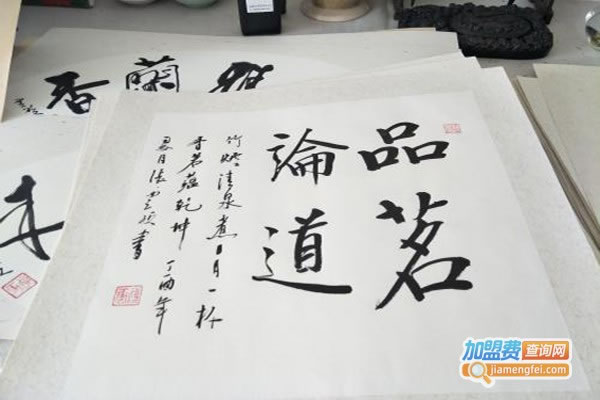 品茗
論道
清泉煮日月一杯
香茗蘊乾坤 丁酉年
書
蘭香
加盟费查询网
jiamengfei.com